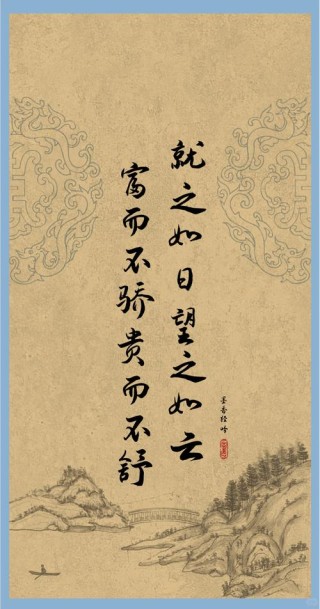 就之如日望之如云
富而不骄贵而不舒
墨香经吟